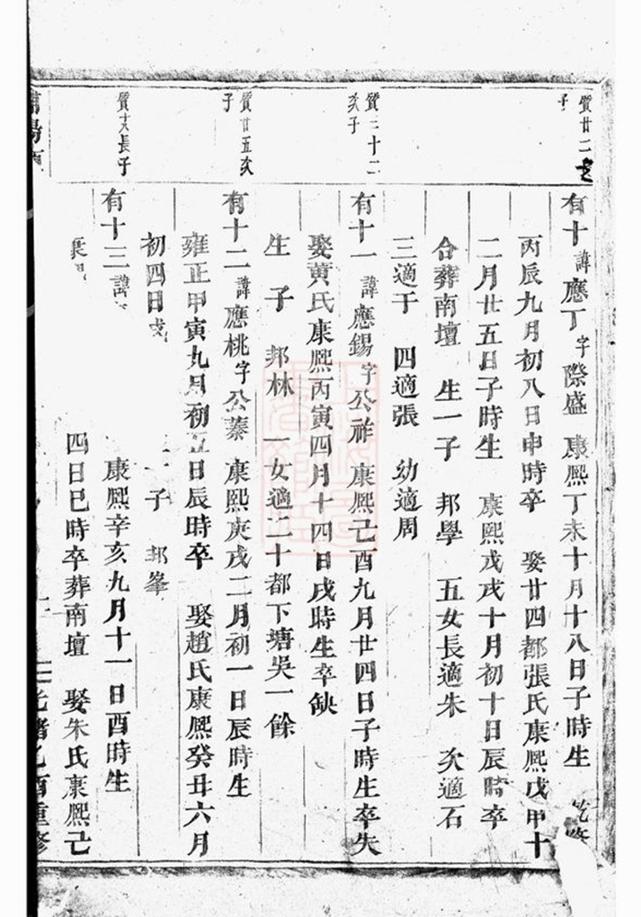 質廿二長
子
有十諱應丁字際盛 康熙丁未十月十八日子時生
丙辰九月初八日申時卒 娶廿四都張氏康熙戊申十
二月廿五日子時生 康熙戊戌十月初十日辰時卒
合葬南壇 生一子 邦學 五女長適朱 次適石
三適于 四適張 幼適周
質三十二
次子
有十一諱應錫字公祚 康熙己酉九月廿四日子時生卒失
娶黃氏康熙丙寅四月十四日戌時生卒缺
生子 邦林 一女適二十都下塘吳一餘
質廿五次
子
有十二諱應桃字公蓁 康熙庚戌二月初一日辰時生
雍正甲寅九月初五日辰時卒 娶趙氏康熙癸丑六月
初四日戌
子 邦峯
質丈長子
有十三諱
康熙辛亥九月十一日酉時生
四日巳時卒葬南壇 娶朱氏康熙己
光緒乙酉重修